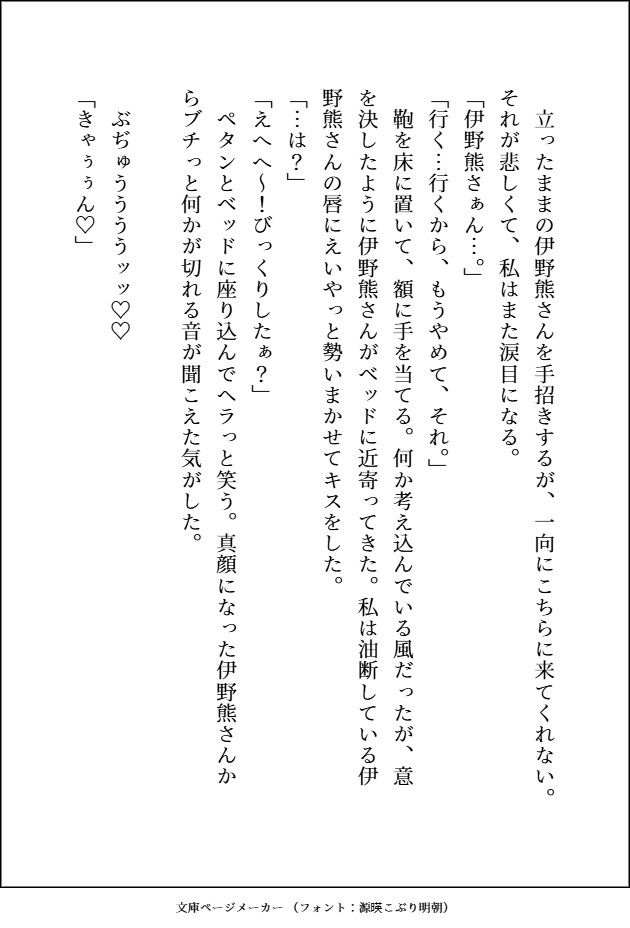 立ったままの伊野熊さんを手招きするが、一向にこちらに来てくれない。
それが悲しくて、私はまた涙目になる。
「伊野熊さぁん…。」
「行く…行くから、もうやめて、それ。」
鞄を床に置いて、額に手を当てる。何か考え込んでいる風だったが、意
を決したように伊野熊さんがベッドに近寄ってきた。私は油断している伊
野熊さんの唇にえいやっと勢いまかせてキスをした。
「…は？」
「えへへ～！びっくりしたぁ？」
ペタンとベッドに座り込んでヘラっと笑う。真顔になった伊野熊さんか
らブチっと何かが切れる音が聞こえた気がした。
ぶぢゅううううッッ♡♡
「きゃぅぅん♡」
文庫ページメーカー （フォント：源暎こぶり明朝）